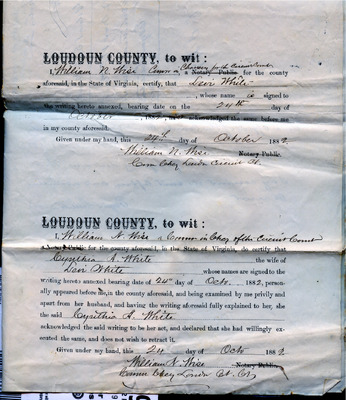 LOUDOUN COUNTY, to wit:
I, William N. Wise Comm in Chancery for the Circuit Court
a Notary Public for the county
aforesaid, in the State of Virginia, certify, that Levi White
, whose name is signed to
the writing hereto annexed, bearing date on the 24th day of
October 1882, acknowledged the same before me
in my county aforesaid.
Given under my hand, this 24th day of October 1882
William N. Wise Notary Public.
Com Chcy Circuit Ct.
LOUDOUN COUNTY, to wit:
I, William N. Wise a Commr in Chcy of the Circuit Court
a Notary Public for the county aforesaid, in the State of Virginia, do certify that
Cynthia A. White the wife of
Levi White whose names are signed to the
writing hereto annexed bearing date of 24th day of Octo. 1882, person-
ally appeared before me, in the county aforesaid, and being examined by me privily and
apart from her husband, and having the writing aforesaid fully explained to her, she
the said Cynthia A. White
acknowledged the said writing to be her act, and declared that she had willingly ex-
ecuted the same, and does not wish to retract it.
Given under my hand, this 24 day of Octo 1882.
William N. Wise Notary Public.
Commr Chcy Ct. Ct.